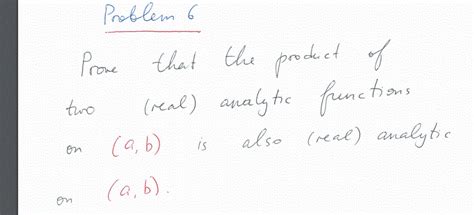 Problem 6
Prove that the product of
two (real) analytic functions
on (a, b) is also (real) analytic
on (a, b).